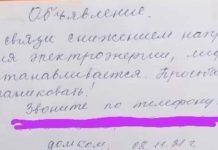 Объявление.
связи снижением напр
ия электроэнергии, лиф
станавливается. Просьба
паниковать!
Звоните по телефону
домком, 08.11.21 г